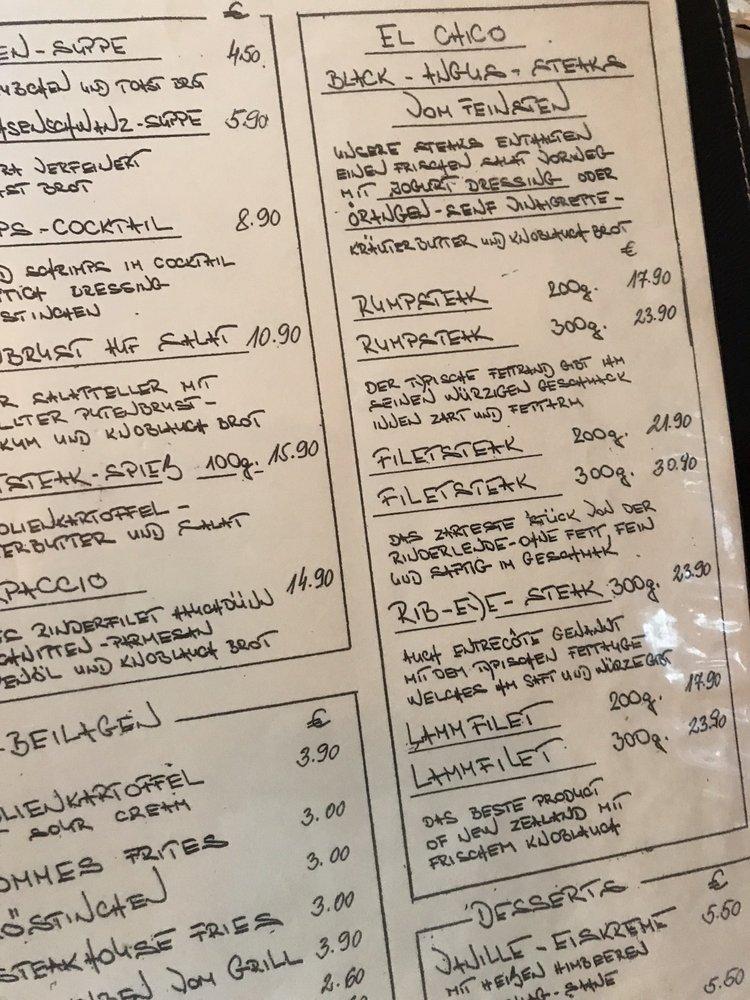 €
EN-SUPPE 4.50
UND TOAST BROT
SENSCHWANZ-SUPPE 5.90
VERFEINERT
BROT
PS-COCKTAIL 8.90
SCHRIMPS IM COCKTAIL
DRESSING
STINCHEN
BRUST AUF SALAT 10.90
R SALATTELLER MIT
LLTER PUTENBRUST-
KUM UND KNOBLAUCH BROT
TSTEAK-SPIEß 100g. 15.90
OLIENKARTOFFEL-
TERBUTTER UND SALAT
RPACCIO 14.90
ES RINDERFILET HAUCHDÜNN
CHNITTEN-PARMESAN
VENÖL UND KNOBLAUCH BROT
-BEILAGEN €
OLIENKARTOFFEL 3.90
SOUR CREAM
OMMES FRITES 3.00
ÖSTINCHEN 3.00
STEAKHOUSE FRIES 3.00
VOM GRILL 3.90
2.60
EL CHICO
BLACK-ANGUS-STEAKS
VOM FEINSTEN
UNSERE STEAKS ENTHALTEN
EINEN FRISCHEN SALAT VORWEG
MIT JOGURT DRESSING ODER
ORANGEN-SENF VINAIGRETTE-
KRÄUTERBUTTER UND KNOBLAUCH BROT
€
RUMPSTEAK 200g. 17.90
RUMPSTEAK 300g. 23.90
DER TYPISCHE FETTRAND GIBT IHM
SEINEN WÜRZIGEN GESCHMACK
INNEN ZART UND FETTARM
FILETSTEAK 200g. 21.90
FILETSTEAK 300g. 30.90
DAS ZARTESTE STÜCK VON DER
RINDERLENDE-OHNE FETT, FEIN
UND SAFTIG IM GESCHMAK
RIB-EYE-STEAK 300g. 23.90
AUCH ENTRECÔTE GENANNT
MIT DEM TYPISCHEN FETTAUGE
WELCHES IHM SAFT UND WÜRZE GIBT
LAMMFILET 200g. 17.90
LAMMFILET 300g. 23.90
DAS BESTE PRODUCT
OF NEW ZEALAND MIT
FRISCHEM KNOBLAUCH
DESSERTS €
VANILLE-EISKREME 5.50
MIT HEIßEN HIMBEEREN
-SAHNE 5.50